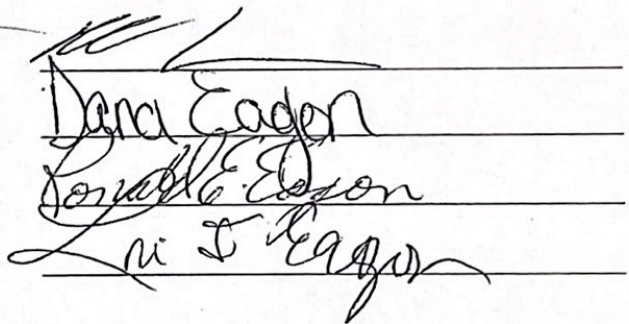 Dana Eagon
Ronald E. Eagon
Lori J Eagon